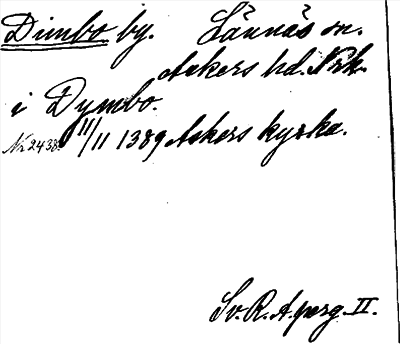 Dimbo by. Lännäs sn.
Askers hd. Nrk.
i Dymbo.
Nr 2438. 11/11 1389 Askers kyrka.
Sv. R. A. perg. II.